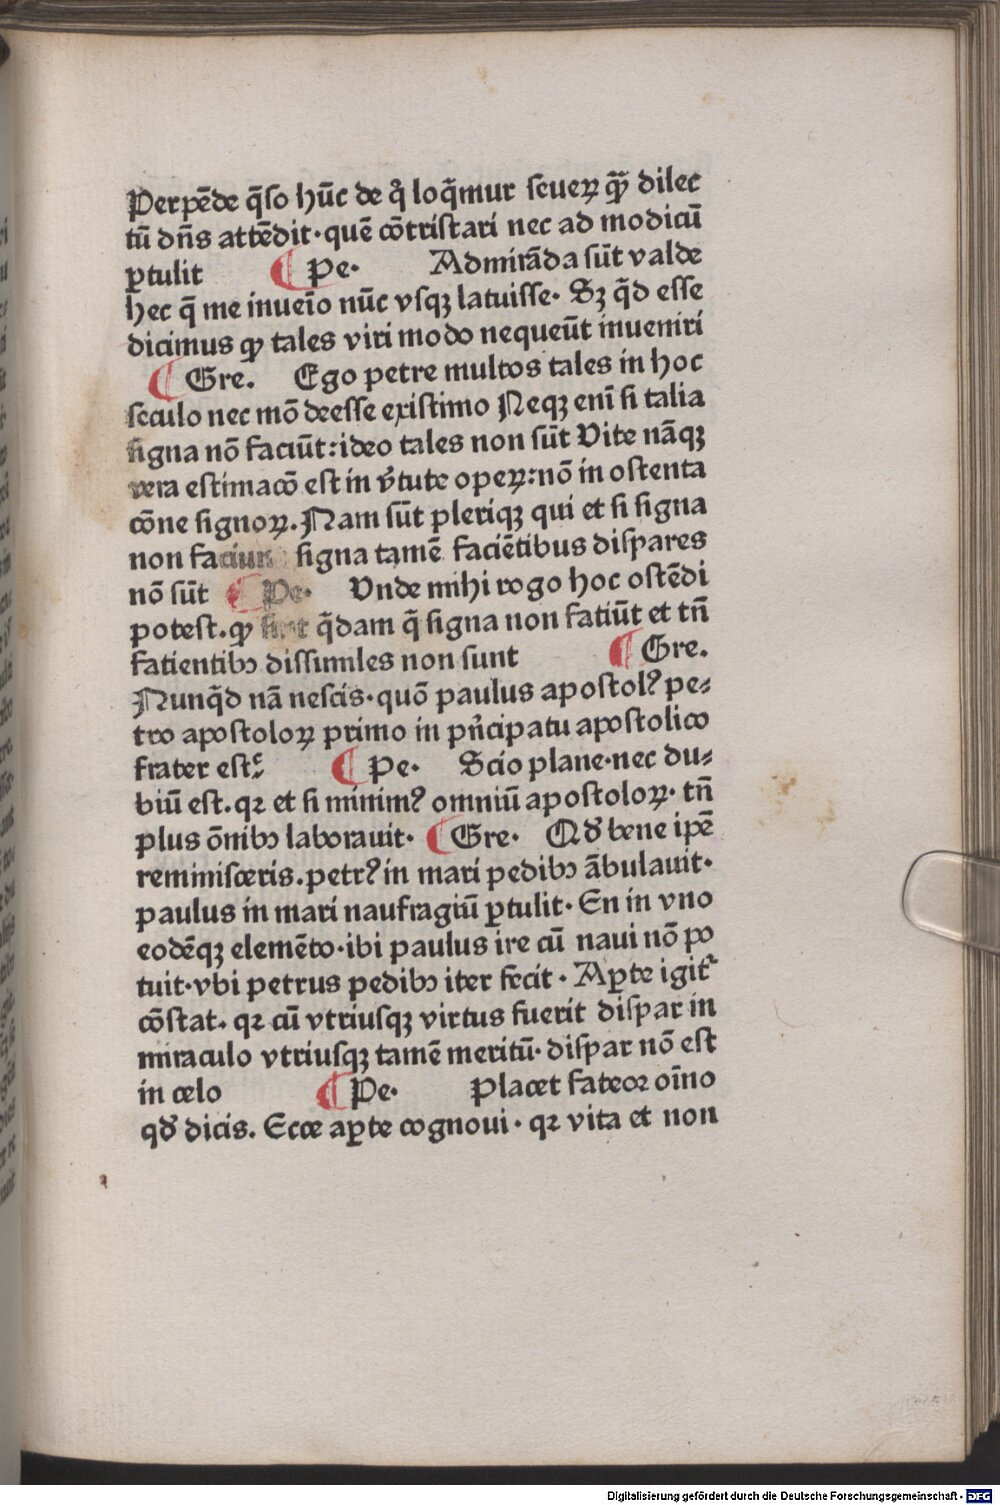 Perpēde q̄so hūc de q̊ loq̄mur seueꝝ qꝫ̄ dilec
tū dn̄s attēdit·quē cōtristari nec ad modicū
ꝑtulit ¶ Pe· Admirāda sūt valde
hec q̄ me inueīo nūc vsqꝫ latuisse· Sꝫ q̄d esse
dicimus ꝙ tales viri modo nequeūt inueniri
¶ Gre. Ego petre multos tales in hoc
seculo nec mō deesse existimo Neqꝫ enī si talia
signa nō faciūt:ideo tales non sūt Vite nāqꝫ
vera estimacō est in v̄tute opeꝝ:nō in ostenta
cōne signoꝝ. Nam sūt pleriqꝫ qui et si signa
non faciunt signa tamē faciētibus dispares
nō sūt ¶ Pe· Vnde mihi rogo hoc ostēdi
potest.ꝙ sint q̄dam q̄ signa non fatiūt et tn̄
fatientibꝰ dissimiles non sunt ¶ Gre.
Nunq̄d nā nescis·quō paulus apostolꝰ pe-
tro apostoloꝝ primo in pn̄cipatu apostolico
frater est ¶ Pe· Scio plane·nec du-
biū est.qꝛ et si minimꝰ omniū apostoloꝝ· tn̄
plus ōnibꝰ laborauit· ¶ Gre· Qd̓ bene ipē
reminisceris.petrꝰ in mari pedibꝰ ābulauit·
paulus in mari naufragiū ꝑtulit· En in vno
eodēqꝫ elemēto·ibi paulus ire cū naui nō po
tuit·vbi petrus pedibꝰ iter fecit· Aꝑte igit᷑
cōstat. qꝛ cū vtriusqꝫ virtus fuerit dispar in
miraculo vtriusqꝫ tamē meritū· dispar nō est
in celo ¶ Pe· Placet fateor oīno
qd̓ dicis. Ecce aꝑte cognoui· qꝛ vita et non
Digitalisierung gefördert durch die Deutsche Forschungsgemeinschaft - DFG